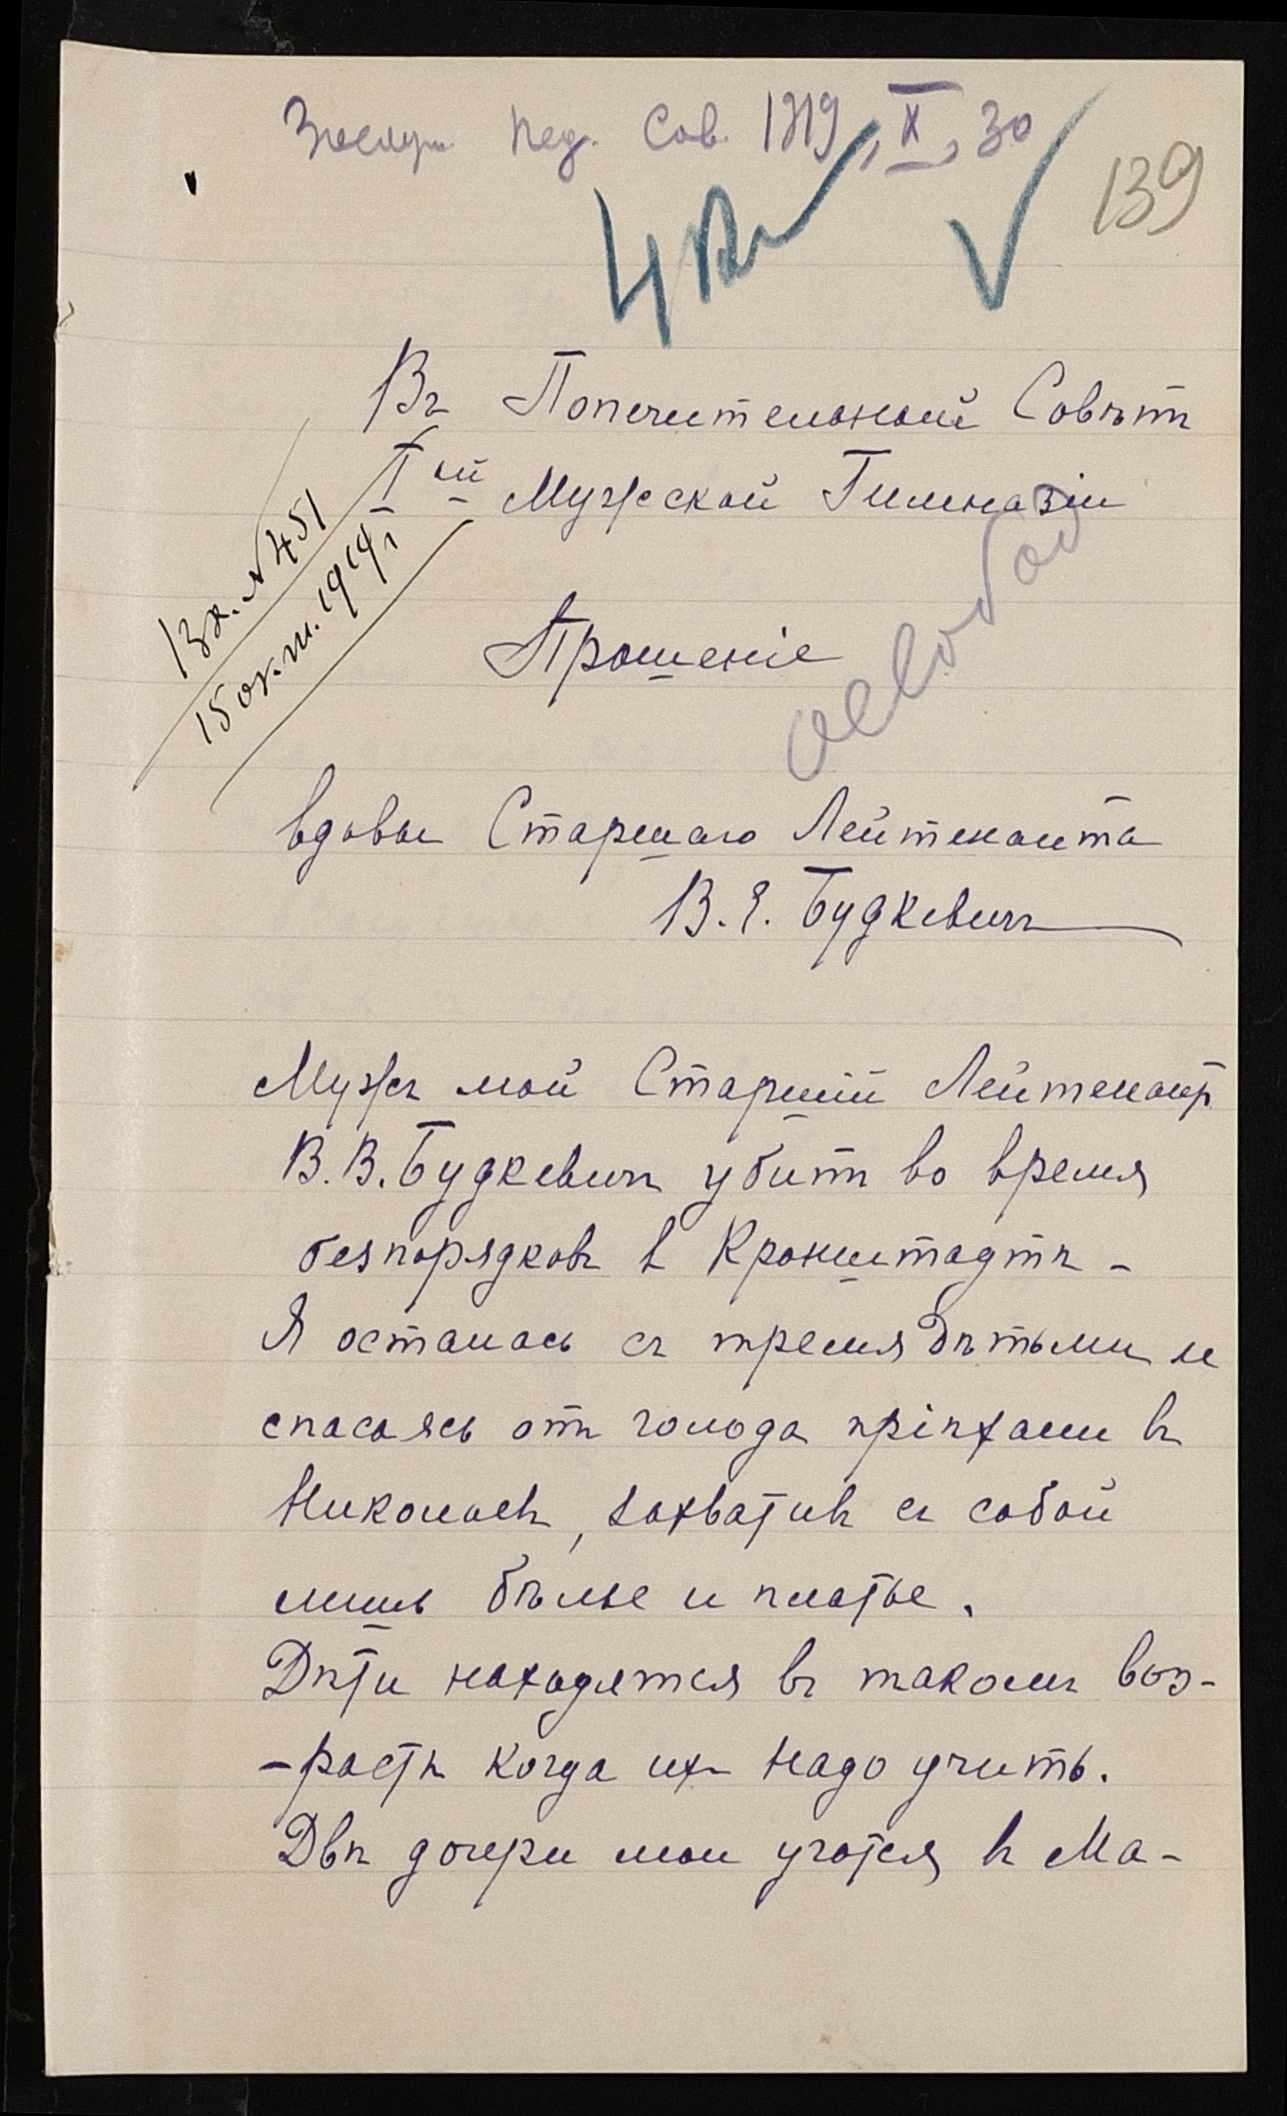 Заслуш. Пед. Сов. 1919, X, 30
139
Въ Попечительный Совѣтъ
I ой Мужской Гимназіи
Вх. № 451
15 окт. 1919 г.
Прошеніе
освобод
вдовы Старшаго Лейтенанта
В. Е. Будкевичъ
Мужъ мой Старшій Лейтенантъ
В. В. Будкевичъ убитъ во время
безпорядковъ в Кронштадтѣ -
Я осталась съ тремя дѣтьми и
спасаясь отъ голода пріѣхали въ
Николаевъ, захвативъ съ собой
лишь бѣлье и платье.
Дѣти находятся въ такомъ воз-
-растѣ когда ихъ надо учить.
Двѣ дочери мои учатся въ Ма-